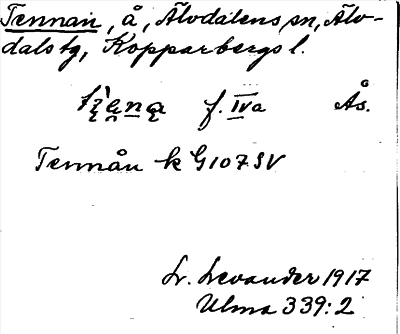 Tennån, å, Älvdalens sn, Älv-
dals tg, Kopparbergs l.
f. IVa Ås.
Tennån k G107SV
L. Levander 1917
Ulma 339:2